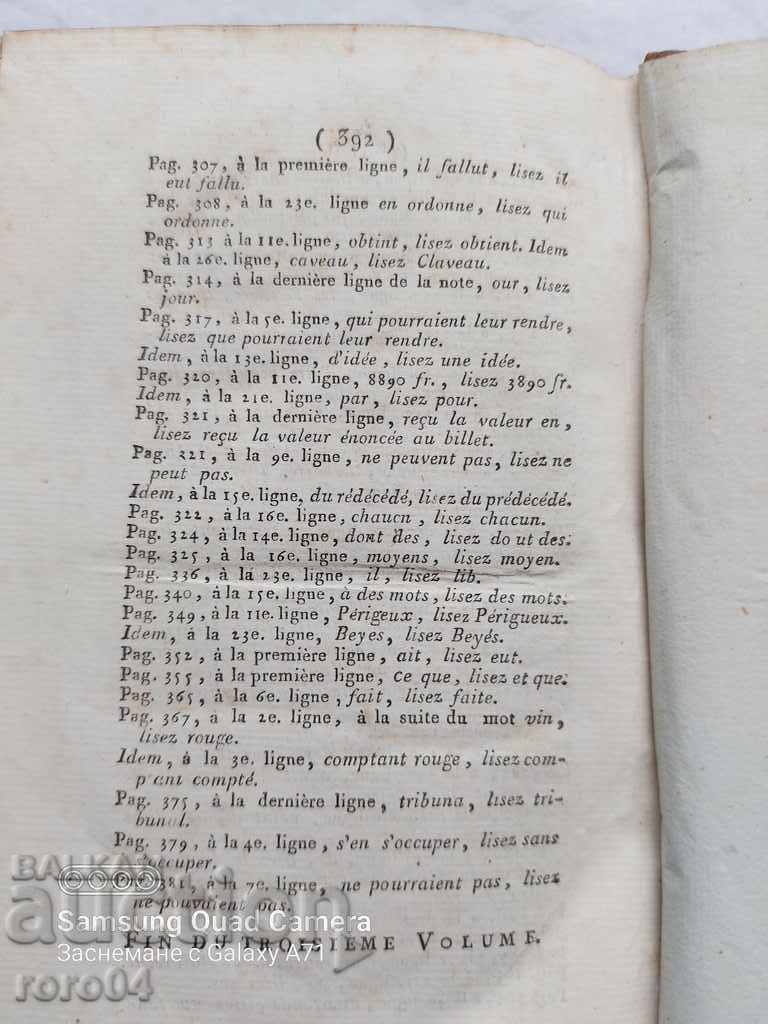 ( 392 )
Pag. 307, à la première ligne, il fallut, lisez il
eut fallu.
Pag. 308, à la 23e. ligne en ordonne, lisez qui
ordonne.
Pag. 313 à la 11e. ligne, obtint, lisez obtient. Idem
à la 26e. ligne, caveau, lisez Claveau.
Pag. 314, à la dernière ligne de la note, our, lisez
jour.
Pag. 317, à la 5e. ligne, qui pourraient leur rendre,
lisez que pourraient leur rendre.
Idem, à la 13e. ligne, d'idée, lisez une idée.
Pag. 320, à la 11e. ligne, 8890 fr., lisez 3890 fr.
Idem, à la 21e. ligne, par, lisez pour.
Pag. 321, à la dernière ligne, reçu la valeur en,
lisez reçu la valeur énoncée au billet.
Pag. 321, à la 9e. ligne, ne peuvent pas, lisez ne
peut pas.
Idem, à la 15e. ligne, du rédécédé, lisez du prédécédé.
Pag. 322, à la 16e. ligne, chaucn, lisez chacun.
Pag. 324, à la 14e. ligne, dont des, lisez do ut des.
Pag. 325, à la 16e. ligne, moyens, lisez moyen.
Pag. 336, à la 23e. ligne, il, lisez lib.
Pag. 340, à la 15e. ligne, à des mots, lisez des mots.
Pag. 349, à la 11e. ligne, Périgeux, lisez Périgueux.
Idem, à la 23e. ligne, Beyes, lisez Beyés.
Pag. 352, à la première ligne, ait, lisez eut.
Pag. 355, à la première ligne, Ce que, lisez et que.
Pag. 365, à la 6e. ligne, fait, lisez faite.
Pag. 367, a la 2e. ligne, à la suite du mot vin,
lisez rouge.
Idem, à la 3e. ligne, comptant rouge, lisez com-
p ant compté.
Pag. 375, à la dernière ligne, tribuna, lisez tri-
bunal.
Pag. 379, à la 4e. ligne, s'en s'occuper, lisez sans
s'occuper.
381, à la 7e. ligne, ne pourraient pas, lisez
ne pouvaient pas.
FIN DU TROISIEME VOLUME.
BALKAN
auction
Samsung Quad Camera
Заснемане с Galaxy A71
roro04